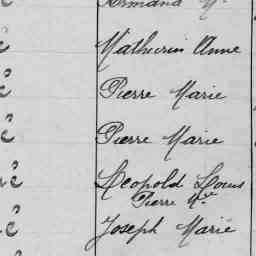 Armand M.
Mathurin Anne
Pierre Marie
Pierre Marie
Léopold Louis
Pierre Mie
Joseph Marie